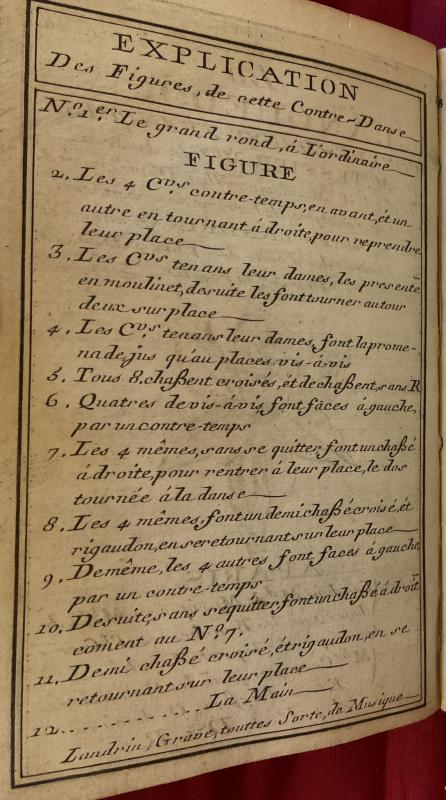 EXPLICATION
Des Figures, de cette Contre-Danse
N.º 1.er Le grand rond, á L'ordinaire
FIGURE
2. Les 4 C.vrs contre-temps, en avant, ét un
autre en tournant á droite, pour reprendre
leur place
3. Les C.vrs tenans leur dames, les presente
en moulinet, desuite les font tourner autour
deux sur place
4. Les C.vrs tenans leur dames, font la prome-
nade, jus qu'au places vis-á-vis
5. Tous 8, chaßent croisés, ét dechaßent, sans R
6. Quatres de vis-á-vis, font fâces á gauche,
par un contre-temps
7. Les 4 mêmes, sans se quitter, font un chaßé
á droite, pour rentrer á leur place, le dos
tournée á la danse
8. Les 4 mêmes, font un demi chaßé croisé, ét
rigaudon, en se retournant sur leur place
9. Demême, les 4 autres font faces á gauche,
par un contre-temps
10. Desuite, sans se quitter, font un chaßé á droit
coment au N.º 7.
11. Demi chaßé croisé, ét rigaudon, en se
retournant sur leur place
12. . . . . . . . . . . La Main
Landrin, Grave, touttes Sorte, de Musique